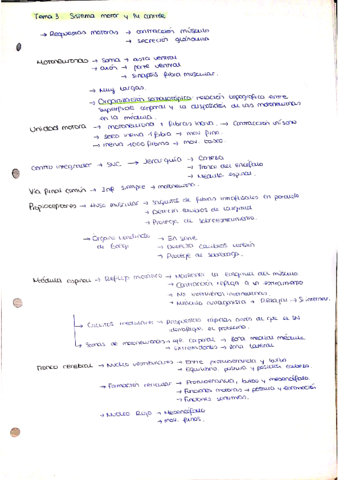 Tema 3 Sistema motor y su control
→ Respuestas motoras → contracción músculo
→ secreción glándula
Motoneuronas → soma → asta ventral
→ axón → parte ventral
→ sinapsis fibra muscular.
→ Muy largas.
→ Organización somatotópica: relación topográfica entre
superficie corporal y la disposición de las motoneuronas
en la médula.
Unidad motora → motoneurona + fibras inerva. → contracción unísono
→ inerva 1 fibra → mov fino
→ inerva 1000 fibras → mov. tosco.
Centro integrador → SNC. → Jerarquía → Corteza
→ Tronco del encéfalo
→ Médula espinal
Vía final común → Inf siempre → motoneurona.
Propioceptores → Huso muscular → fibras intrafusales en paralelo
→ Detectan cambios de longitud
→ Protege de sobreestiramiento.
→ Órgano tendinoso de Golgi → En serie
→ Detecta cambios tensión
→ Protege de sobrecarga.
Médula espinal → Reflejo miotático → Mantener la longitud del músculo
→ Contracción refleja a un estiramiento
→ No intervienen interneuronas.
→ Músculo antagonista → Relajan → Si interner.
→ Circuitos medulares → Respuestas rápidas antes de que el SN
identifique el problema.
→ Somas de motoneuronas → eje corporal → zona medial médula
→ Extremidades → zona lateral
Tronco cerebral → Núcleo vestibulares → Entre protuberancia y bulbo
→ Equilibrio, postura y posición cabeza.
→ Formación reticular → Protuberancia, bulbo y mesencéfalo
→ Funciones motoras → postura y locomoción
→ Funciones
→ Núcleo Rojo → Mesencéfalo
→ Mov. finos.